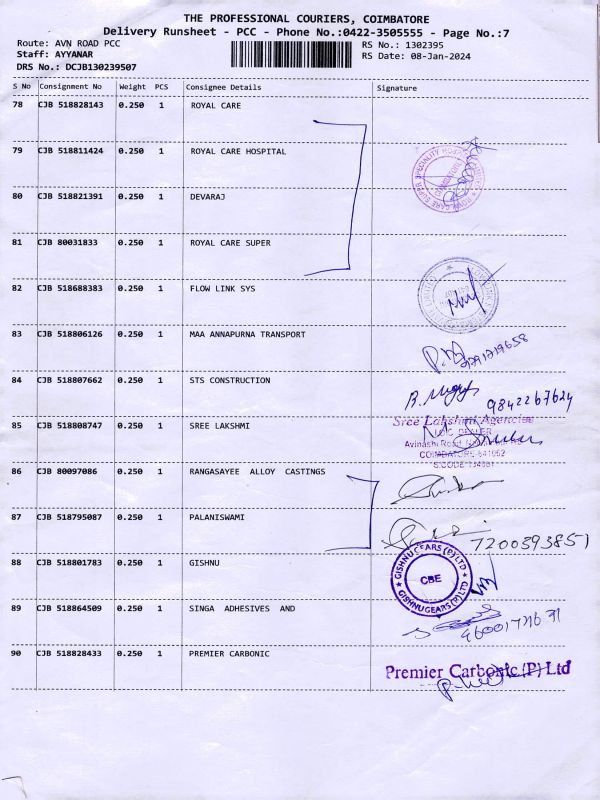 THE PROFESSIONAL COURIERS, COIMBATORE
Delivery Runsheet - PCC - Phone No.:0422-3505555 - Page No.:7
Route: AVN ROAD PCC
Staff: AYYANAR
DRS No.: DCJB130239507
RS No.: 1302395
RS Date: 08-Jan-2024
S No Consignment No Weight PCS Consignee Details Signature
78 CJB 518828143 0.250 1 ROYAL CARE
79 CJB 518811424 0.250 1 ROYAL CARE HOSPITAL
80 CJB 518821391 0.250 1 DEVARAJ
81 CJB 80031833 0.250 1 ROYAL CARE SUPER
82 CJB 518688383 0.250 1 FLOW LINK SYS
83 CJB 518806126 0.250 1 MAA ANNAPURNA TRANSPORT
84 CJB 518807662 0.250 1 STS CONSTRUCTION
9842267624
85 CJB 518808747 0.250 1 SREE LAKSHMI
Sree Lakshmi Agencies
DEALER
Avinashi Road
COIMBATORE-641062
86 CJB 80097086 0.250 1 RANGASAYEE ALLOY CASTINGS
87 CJB 518795087 0.250 1 PALANISWAMI
7200393851
88 CJB 518801783 0.250 1 GISHNU
GISHNU GEARS (P) LTD
CBE
GISHNU GEARS (P) LTD
89 CJB 518864509 0.250 1 SINGA ADHESIVES AND
90 CJB 518828433 0.250 1 PREMIER CARBONIC
Premier Carbonic (P) Ltd